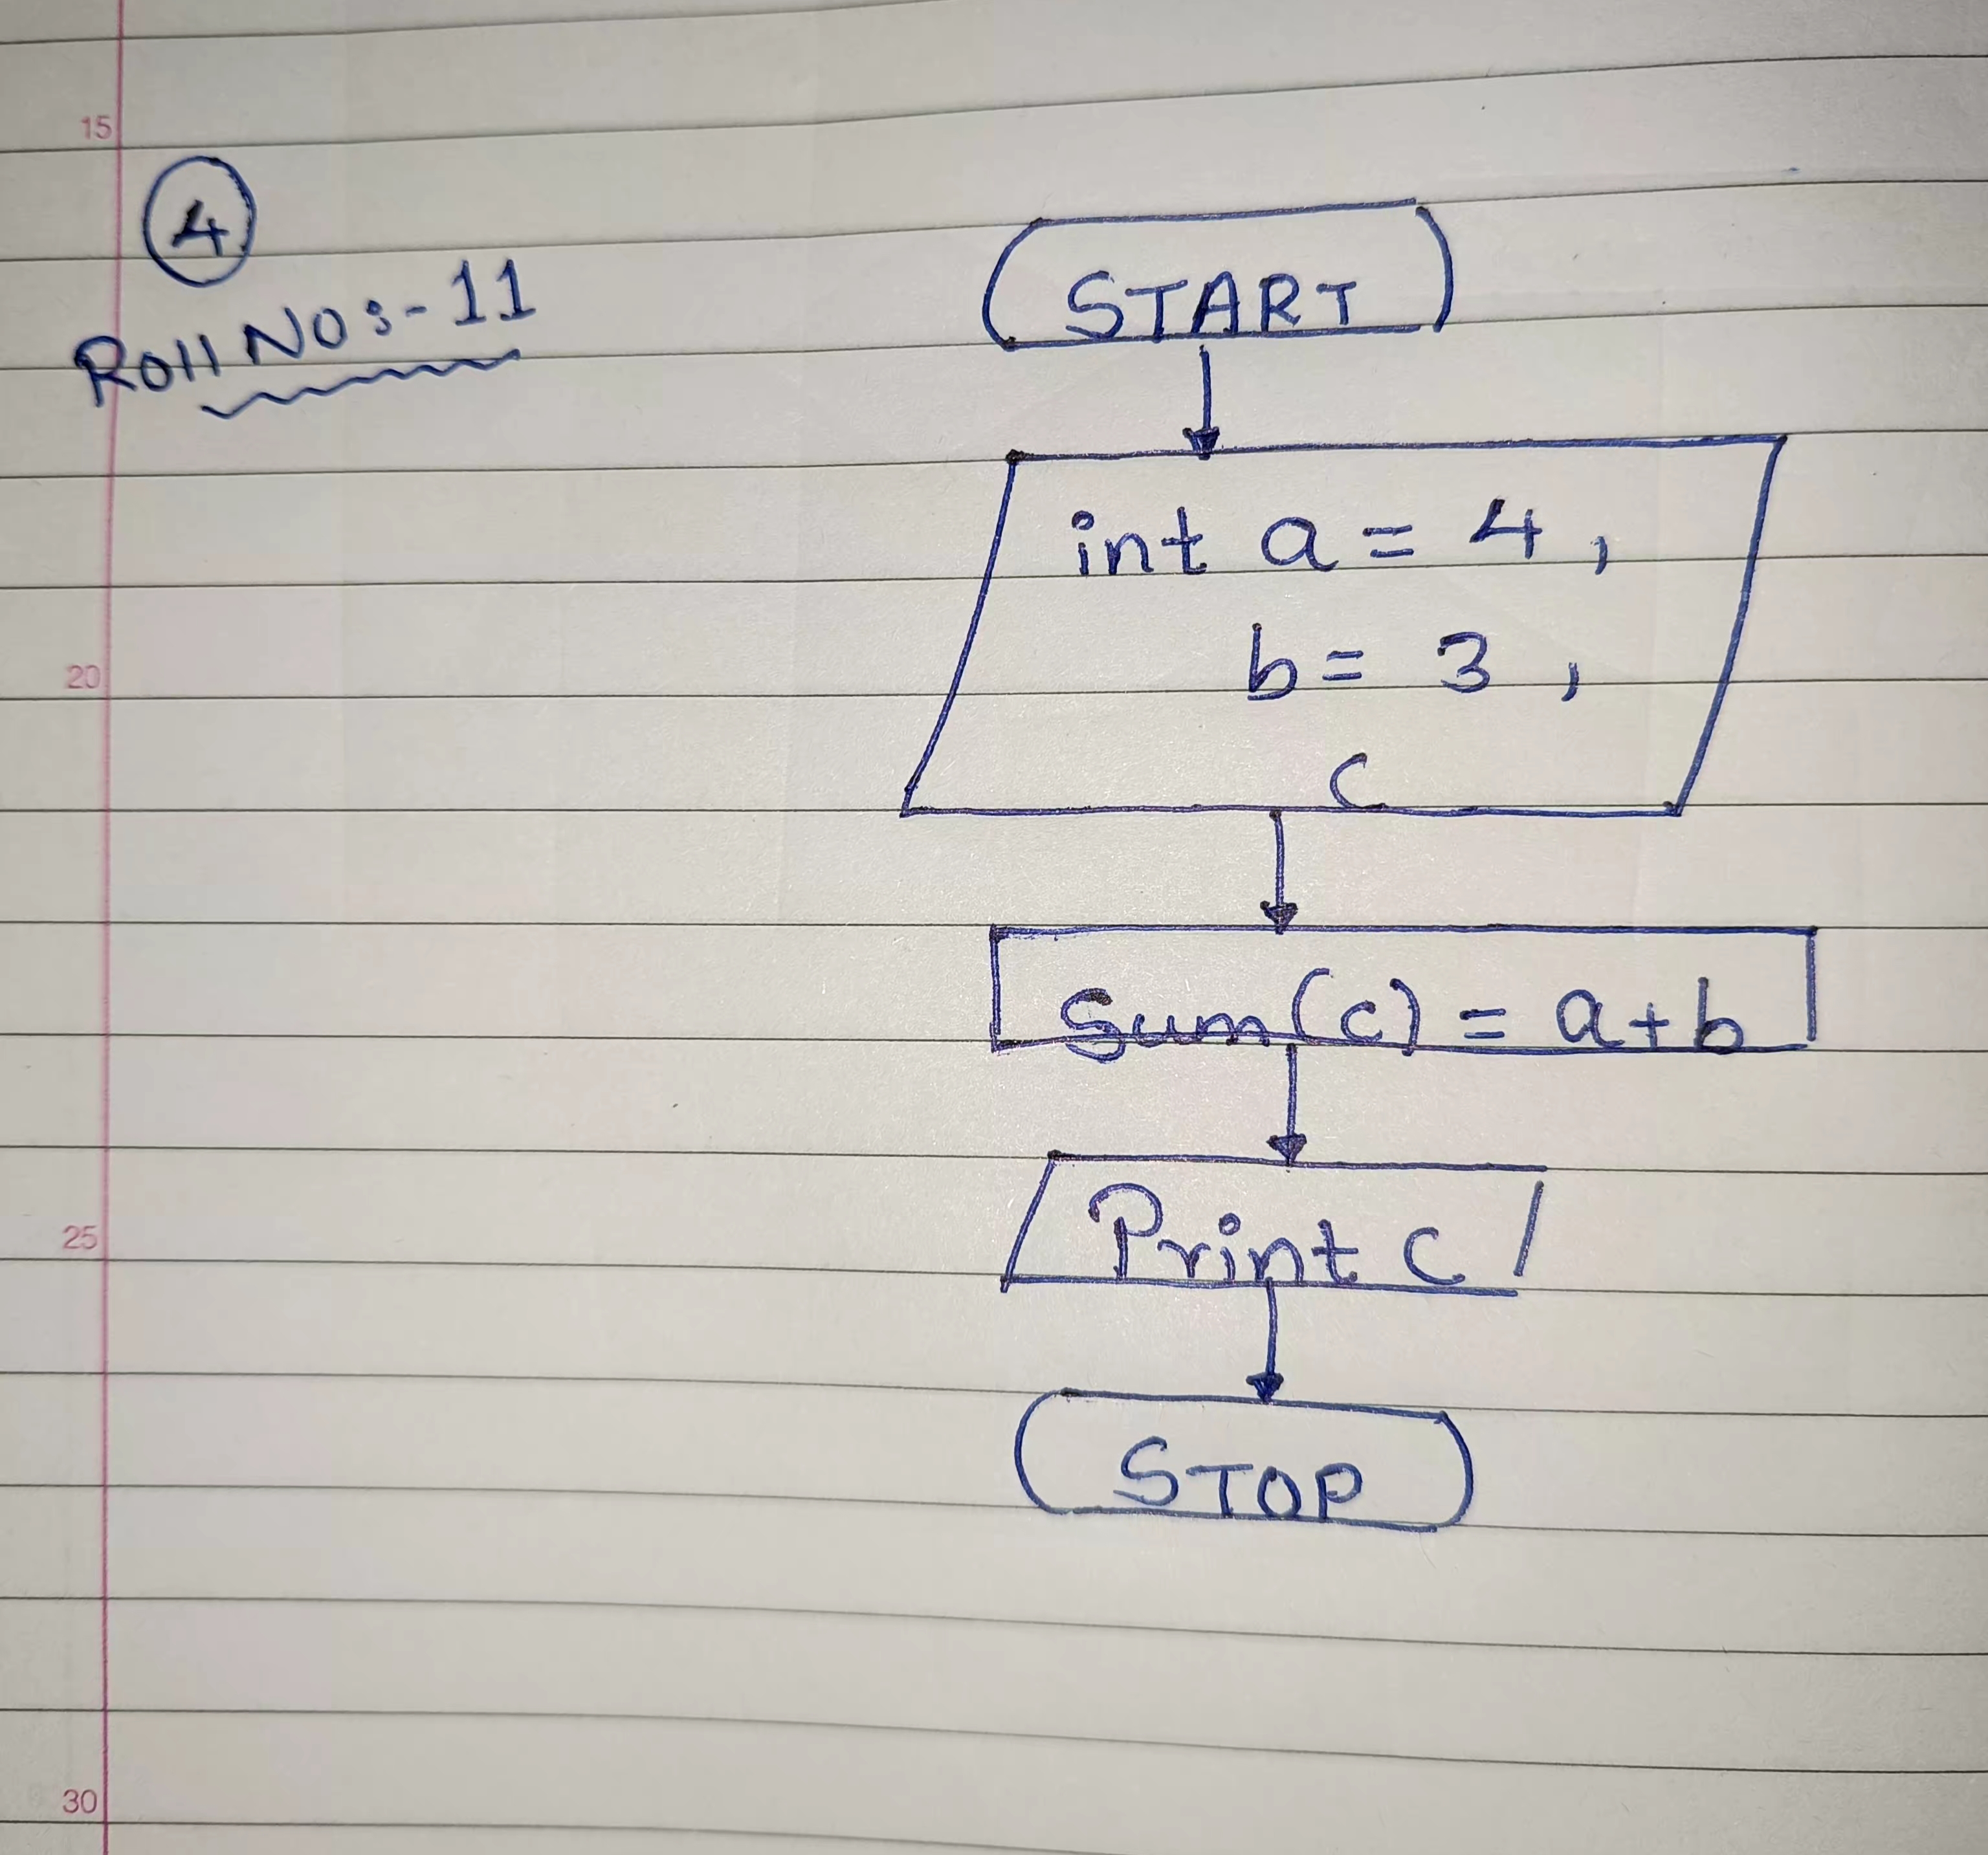 15
4
Roll No:-11
START
int a = 4,
b = 3,
c
20
Sum(c) = a+b
Print c
25
STOP
30